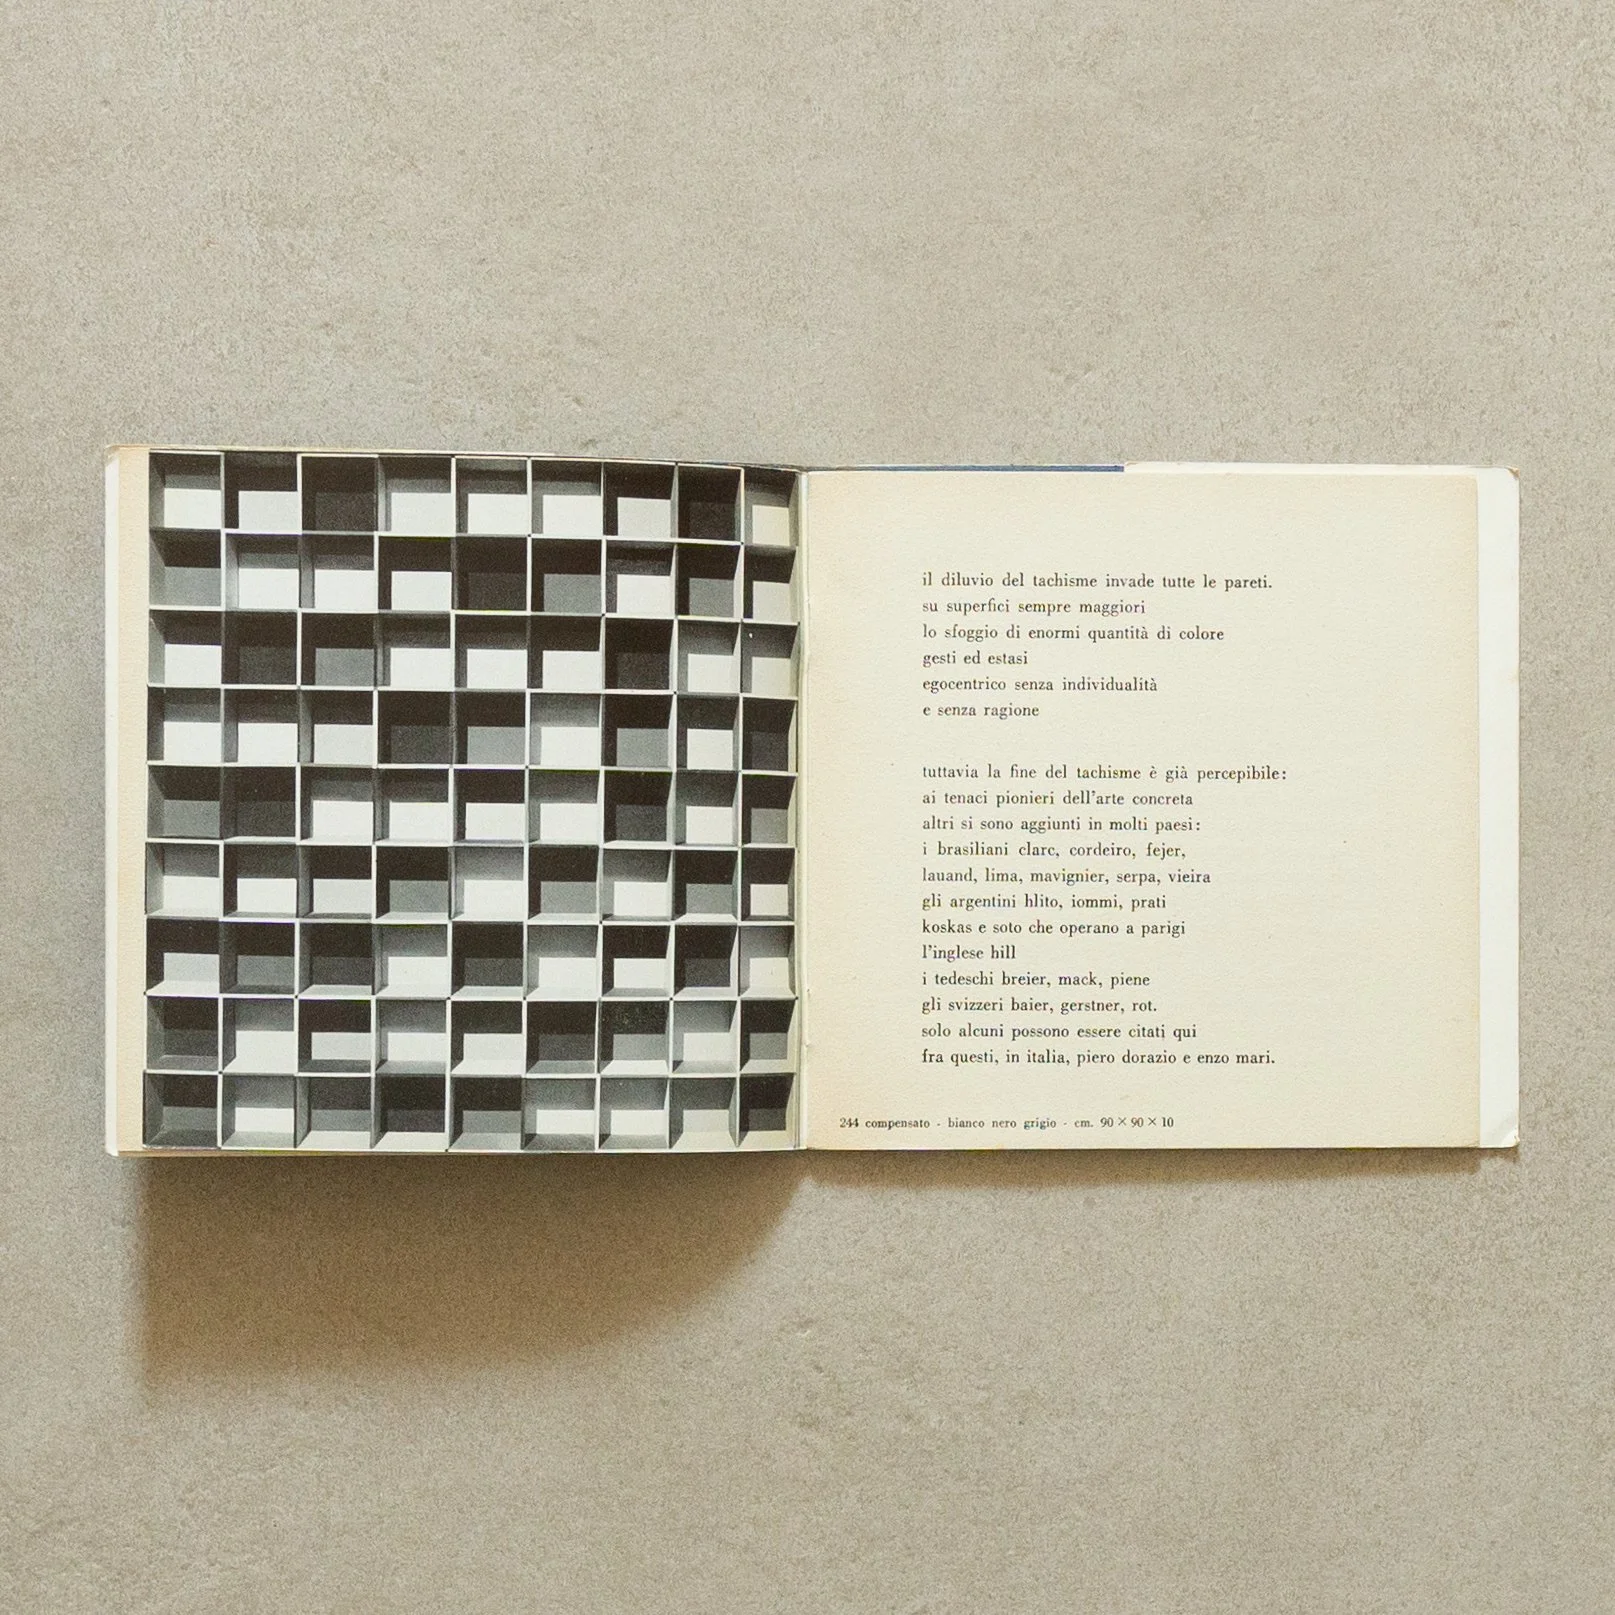 il diluvio del tachisme invade tutte le pareti.
su superfici sempre maggiori
lo sfoggio di enormi quantità di colore
gesti ed estasi
egocentrico senza individualità
e senza ragione
tuttavia la fine del tachisme è già percepibile:
ai tenaci pionieri dell'arte concreta
altri si sono aggiunti in molti paesi:
i brasiliani clarc, cordeiro, fejer,
lauand, lima, mavignier, serpa, vieira
gli argentini hlito, iommi, prati
koskas e soto che operano a parigi
l'inglese hill
i tedeschi breier, mack, piene
gli svizzeri baier, gerstner, rot.
solo alcuni possono essere citati qui
fra questi, in italia, piero dorazio e enzo mari.
244 compensato - bianco nero grigio - cm. 90 × 90 × 10